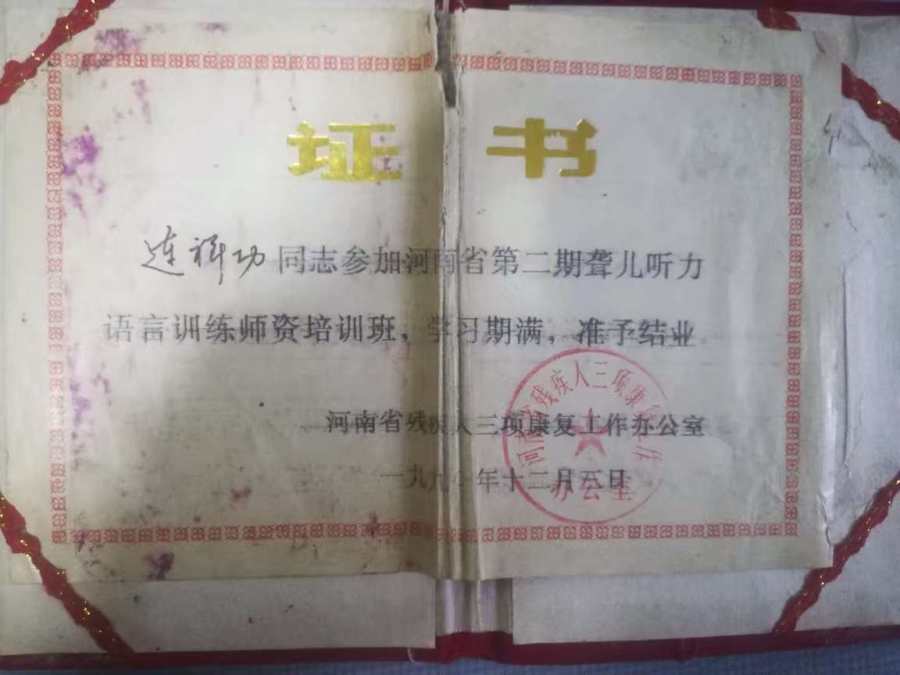 证书
连祥功同志参加河南省第二期聋儿听力
语言训练师资培训班，学习期满，准予结业
河南省残疾人三项康复工作办公室
一九九 年十二月 日
残疾人三项康
办公室